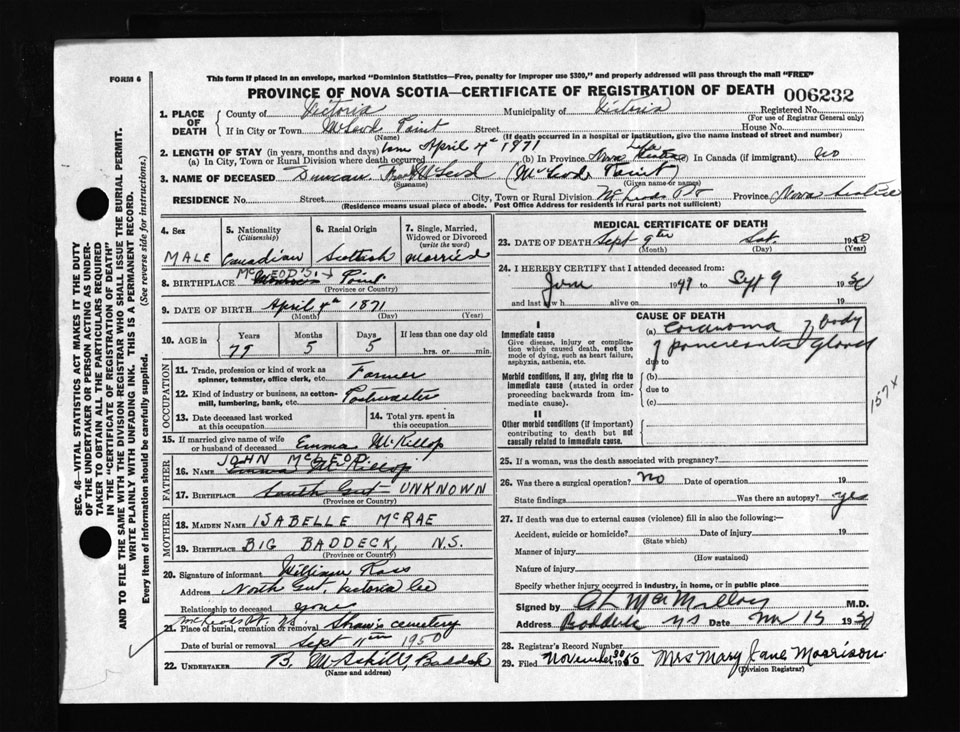 FORM 6
This form if placed in an envelope, marked "Dominion Statistics—Free, penalty for improper use $300," and properly addressed will pass through the mail "FREE"
PROVINCE OF NOVA SCOTIA—CERTIFICATE OF REGISTRATION OF DEATH 006232
1. PLACE OF DEATH
County of Victoria Municipality of Victoria Registered No.
(For use of Registrar General only)
If in City or Town McLeod Point Street House No.
(Name) (If death occurred in a hospital or institution, give the name instead of street and number)
2. LENGTH OF STAY (in years, months and days) April 4th 1871
(a) In City, Town or Rural Division where death occurred (b) In Province Nova In Canada (if immigrant) no
3. NAME OF DECEASED Duncan McLeod (McLeods Point)
(Surname) (Given name or names)
RESIDENCE No. Street City, Town or Rural Division McLeods Pt Province Nova Scotia
(Residence means usual place of abode. Post Office Address for residents in rural parts not sufficient)
4. Sex
MALE
5. Nationality
(Citizenship)
Canadian
6. Racial Origin
Scottish
7. Single, Married, Widowed or Divorced
(write the word)
Married
8. BIRTHPLACE McLEOD'S Point
(Province or Country)
9. DATE OF BIRTH April 4th 1871
(Month) (Day) (Year)
10. AGE IN
Years Months Days If less than one day old
79 5 5 hrs. or min.
OCCUPATION
11. Trade, profession or kind of work as spinner, teamster, office clerk, etc. Farmer
12. Kind of industry or business, as cotton-mill, lumbering, bank, etc.
13. Date deceased last worked at this occupation
14. Total yrs. spent in this occupation
15. If married give name of wife or husband of deceased Emma McKillop
FATHER
JOHN McLEOD
16. NAME Emma McKillop
17. BIRTHPLACE South Gut UNKNOWN
(Province or Country)
MOTHER
18. MAIDEN NAME ISABELLE McRAE
19. BIRTHPLACE BIG BADDECK, N.S.
(Province or Country)
20. Signature of informant William Ross
Address North Gut, Victoria Co
Relationship to deceased none
McLeods Pt. N.S.
21. Place of burial, cremation or removal Shaw's cemetery
Date of burial or removal Sept 11th 1950
22. UNDERTAKER Baddeck
(Name and address)
MEDICAL CERTIFICATE OF DEATH
23. DATE OF DEATH Sept 9th Sat. 1950
(Month) (Day) (Year)
24. I HEREBY CERTIFY that I attended deceased from:
June 1949 to Sept 9 1950
and last saw h alive on 19
CAUSE OF DEATH
I
Immediate cause
Give disease, injury or complication which caused death, not the mode of dying, such as heart failure, asphyxia, asthenia, etc.
(a) Carcinoma of body
of pancreatic gland
due to
Morbid conditions, if any, giving rise to immediate cause (stated in order proceeding backwards from immediate cause).
(b)
due to
(c)
II
Other morbid conditions (if important) contributing to death but not causally related to immediate cause.
157 x
25. If a woman, was the death associated with pregnancy?
26. Was there a surgical operation? No Date of operation 19
State findings Was there an autopsy? yes
27. If death was due to external causes (violence) fill in also the following:—
Accident, suicide or homicide? Date of injury 19
(State which)
Manner of injury
(How sustained)
Nature of injury
Specify whether injury occurred in industry, in home, or in public place
Signed by C L MacMillan M.D.
Address Baddeck NS Date Nov 15 1950
28. Registrar's Record Number
29. Filed November 30 1950 Mrs Mary Jane Morrison
(Division Registrar)
SEC. 46—VITAL STATISTICS ACT MAKES IT THE DUTY OF THE UNDERTAKER OR PERSON ACTING AS UNDERTAKER TO OBTAIN ALL THE PARTICULARS REQUIRED IN THE "CERTIFICATE OF REGISTRATION OF DEATH" AND TO FILE THE SAME WITH THE DIVISION REGISTRAR WHO SHALL ISSUE THE BURIAL PERMIT.
WRITE PLAINLY WITH UNFADING INK. THIS IS A PERMANENT RECORD.
Every item of Information should be carefully supplied. (See reverse side for instructions.)